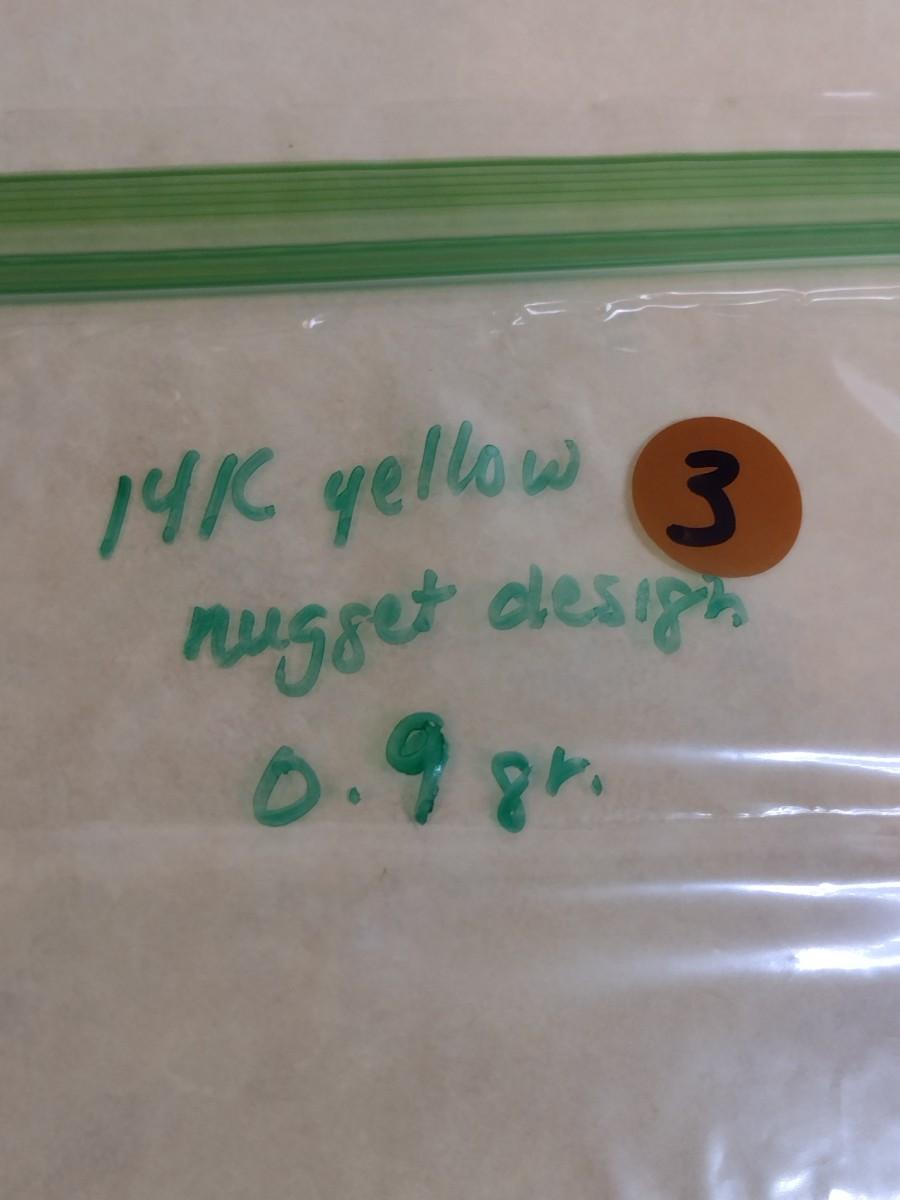 14K yellow
3
nugget design
0.9 gr.